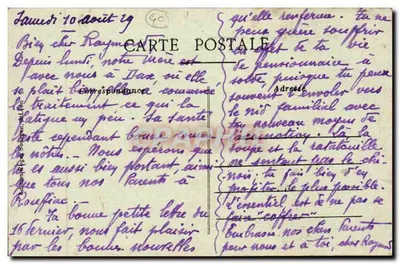 Samedi 10 août 29
Bien cher Raymond
CARTE POSTALE
Depuis lundi, notre Mère est
avec nous à Dax où elle
se plaît bien. Elle a commencé
Correspondance
le traitement ce qui la
fatigue un peu. Sa santé
est cependant bonne comme
les nôtres. Nous espérons que
tu es aussi bien portant, ainsi
que tous nos Parents à
Rouffiac.
Ta bonne petite lettre du
16 dernier, nous fait plaisir
par les bonnes nouvelles
qu'elle renferme. Tu ne
peux guère souffrir
en effet de ta vie
de pensionnaire à
Adresse
puisque tu peux
souvent t'envoler vers
le nid familial avec
ton nouveau moyen de
locomotion. Si la
soupe et la ratatouille
ne sentent pas le chi-
nois, tu fais bien d'en
profiter le plus possible.
L'essentiel est de ne pas se
faire "coffrer"
Embrasse nos chers Parents
pour nous et à toi, cher Raymond